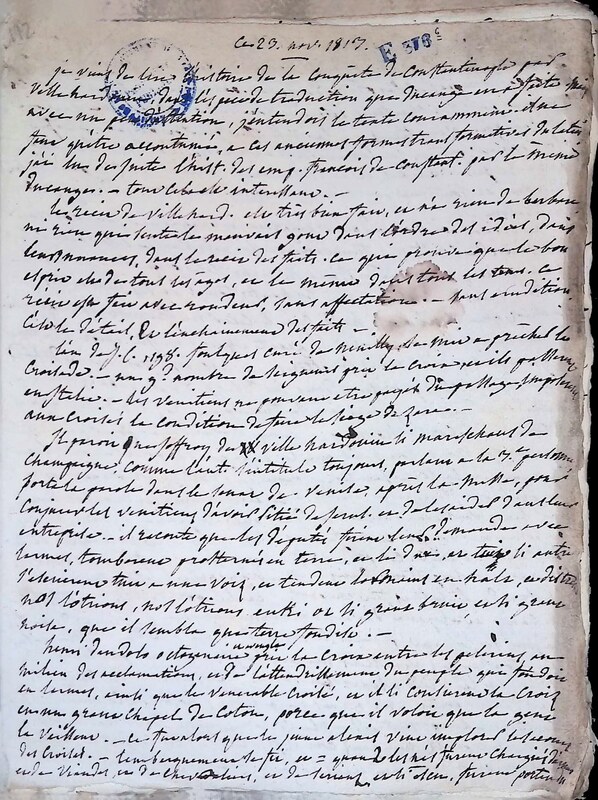 Ce 23. nov. 1817.
E 378 c
je viens de lire l'histoire de la conquête de Constantinople par
ville hardouin, dans l'espèce de traduction que ducange en a faite
avec un peu d'attention, j'entendois le texte concurremment. Une
fois qu'être accoutumée, a ces anciennes formes transformatives du latin
j'ai lu de suite l'hist. des emp. françois de Constant. par le même
ducanges. — tout cela est interessant. —
le récit de ville hard. est très bien fait, et n'a rien de barbare
ni rien qui sente le mauvais gout dans l'ordre des idées, dans
les nuances, dans le récit des faits. ce qui prouve que le bon
esprit est de tous les ages, et le même dans tous les tems. ce
récit est fait avec rondeur, sans affectation. — sans erudition.
C'est le détail, et l'enchainement des faits —
l'an de J. C. 1198. foulques curé de Neuilly, se mit a prêcher la
Croisade. — un gd. nombre de seigneurs prit la croix
en Italie. — les venitiens ne pouvant etre payés du passage, imposerent
aux Croisés la condition de faire le siege de Zara. —
Il paroit que Joffroy de ville hardouin li mareschaus de
Champagne comme l'aut s'intitule toujours, parlant a la 3e. personne
porta la parole dans le senat de Venise, après la messe, pour
conjurer les venitiens d'avoir pitié de Jerusl. et de les aider dans leur
entreprise. — il raconte que les députés firent leur demande avec
larmes, tomberent prosternés en terre, et li dux, et tuit li autre
s'écrierent tuit a une voiz, et tendent les mains en halt, et distrent
nos l'otrions, nos l'otrions enki ot si grant bruit, et si grant
noise, que il sembla que terre fondist. —
henri dandolo octogenaire et aveugle prit la croix entre les pelerins au
milieu des acclamations, et de l'attendrissement du peuple qui fondoit
en larmes, ainsi que le venerable Croisé, et il li cousirent la Croix
en un grant chapel de Coton, porce que il voloit que la gent
la veissent. — ce fut alors que le jeune alexis vint implorer le secours
des Croisés. — l'embarquement se fit, et = quand les nés furent chargés d'armes
et de viandes, et de chevaliers, et de serjanz, et li escu, furent portendu